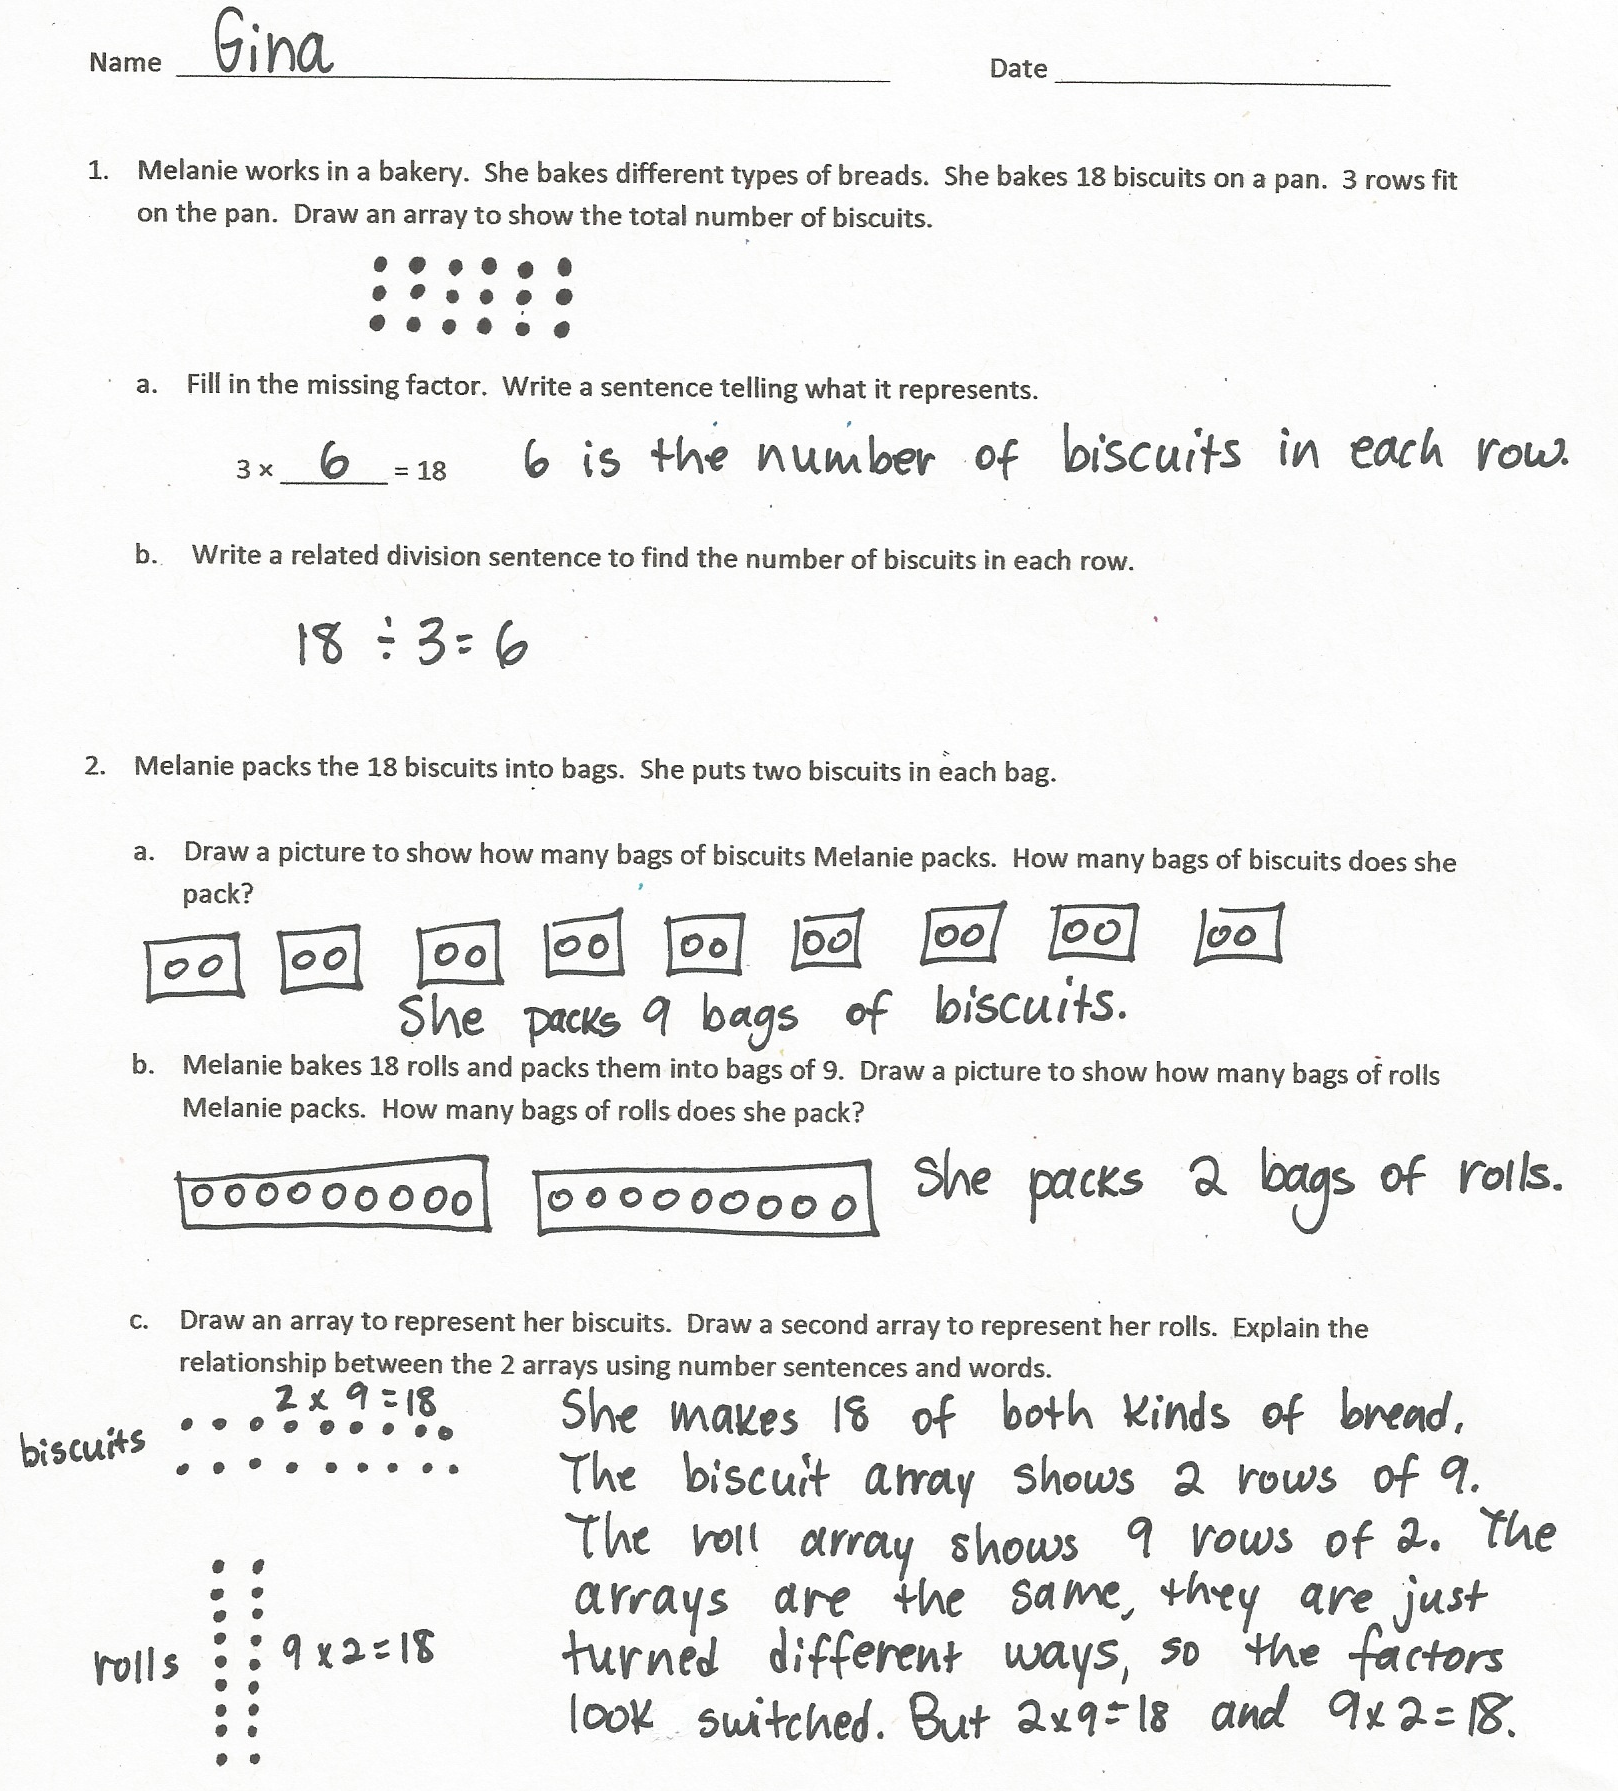 Name Gina Date
1. Melanie works in a bakery. She bakes different types of breads. She bakes 18 biscuits on a pan. 3 rows fit
on the pan. Draw an array to show the total number of biscuits.
a. Fill in the missing factor. Write a sentence telling what it represents.
3 x 6 = 18 6 is the number of biscuits in each row.
b. Write a related division sentence to find the number of biscuits in each row.
18 ÷ 3 = 6
2. Melanie packs the 18 biscuits into bags. She puts two biscuits in each bag.
a. Draw a picture to show how many bags of biscuits Melanie packs. How many bags of biscuits does she
pack?
She packs 9 bags of biscuits.
b. Melanie bakes 18 rolls and packs them into bags of 9. Draw a picture to show how many bags of rolls
Melanie packs. How many bags of rolls does she pack?
She packs 2 bags of rolls.
c. Draw an array to represent her biscuits. Draw a second array to represent her rolls. Explain the
relationship between the 2 arrays using number sentences and words.
2 x 9 = 18
biscuits
rolls
9 x 2 = 18
She makes 18 of both kinds of bread.
The biscuit array shows 2 rows of 9.
The roll array shows 9 rows of 2. The
arrays are the same, they are just
turned different ways, so the factors
look switched. But 2x9=18 and 9x2=18.